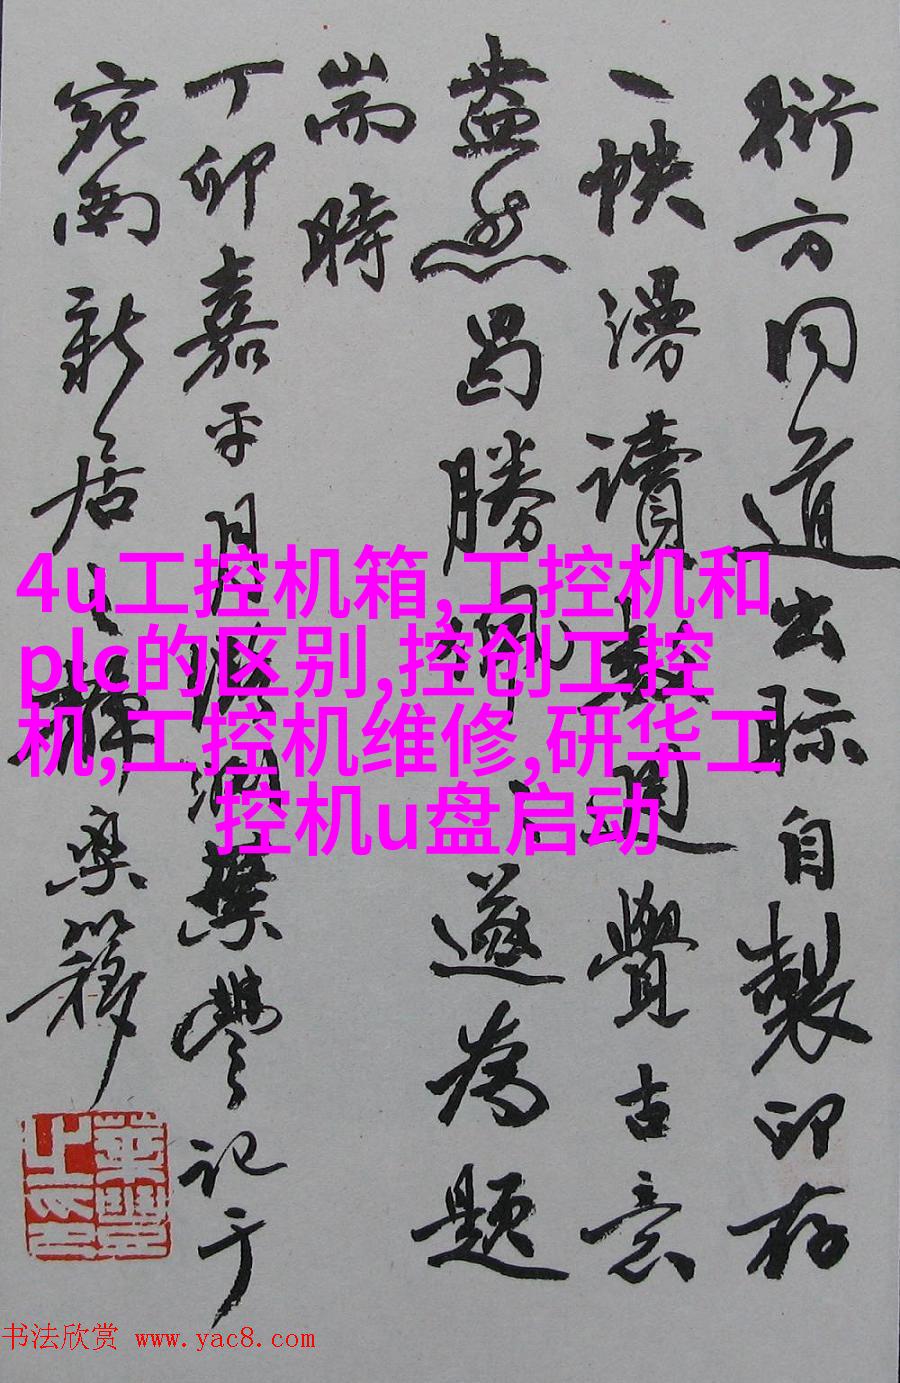 衍方同道出眎自製印存
一帙漫讀數週覺古意
盎然曷勝遂為題
耑時
丁卯嘉平月葉豐记于
宛南新居之靜樂簃
4u工控机箱,工控机和
plc的区别,控创工控
机,工控机维修,研华工
控机u盘启动
书法欣赏 www.yac8.com